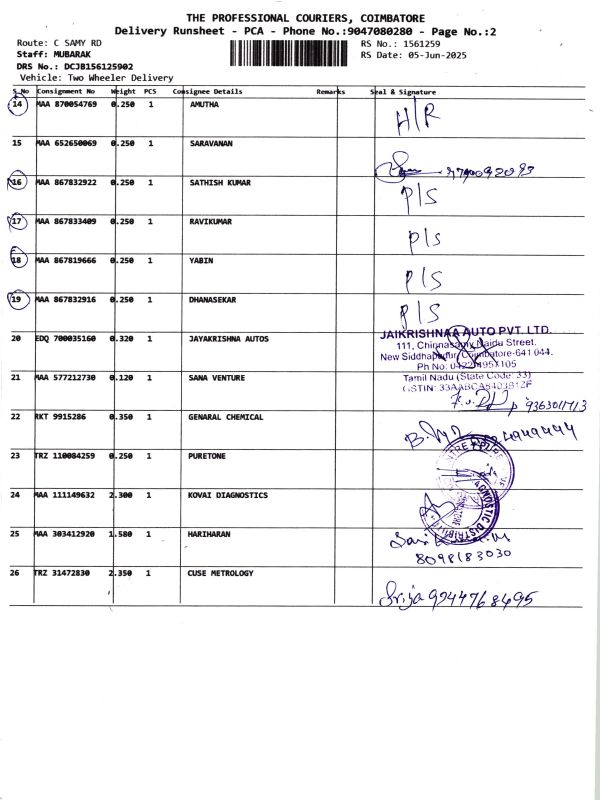 THE PROFESSIONAL COURIERS, COIMBATORE
Delivery Runsheet - PCA - Phone No.:9047080280 - Page No.:2
Route: C SAMY RD
RS No.: 1561259
Staff: MUBARAK
RS Date: 05-Jun-2025
DRS No.: DCJB156125902
Vehicle: Two Wheeler Delivery
S.No Consignment No Weight PCS Consignee Details Remarks Seal & Signature
14 MAA 870054769 0.250 1 AMUTHA H/R
15 MAA 652650069 0.250 1 SARAVANAN
16 MAA 867832922 0.250 1 SATHISH KUMAR P/S
17 MAA 867833409 0.250 1 RAVIKUMAR P/S
18 MAA 867819666 0.250 1 YABIN P/S
19 MAA 867832916 0.250 1 DHANASEKAR P/S
20 EDQ 700035160 0.320 1 JAYAKRISHNA AUTOS
JAIKRISHNAA AUTO PVT. LTD.
111, Chinnasamy Naidu Street,
New Siddhapudur, Coimbatore-641 044.
Ph No:
21 MAA 577212730 0.120 1 SANA VENTURE
Tamil Nadu (State Code: 33)
GSTIN:
22 RKT 9915286 0.350 1 GENARAL CHEMICAL
23 TRZ 110084259 0.250 1 PURETONE
24 MAA 111149632 2.300 1 KOVAI DIAGNOSTICS
25 MAA 303412920 1.580 1 HARIHARAN
8098183030
26 TRZ 31472830 2.350 1 CUSE METROLOGY
Srija 9944768495